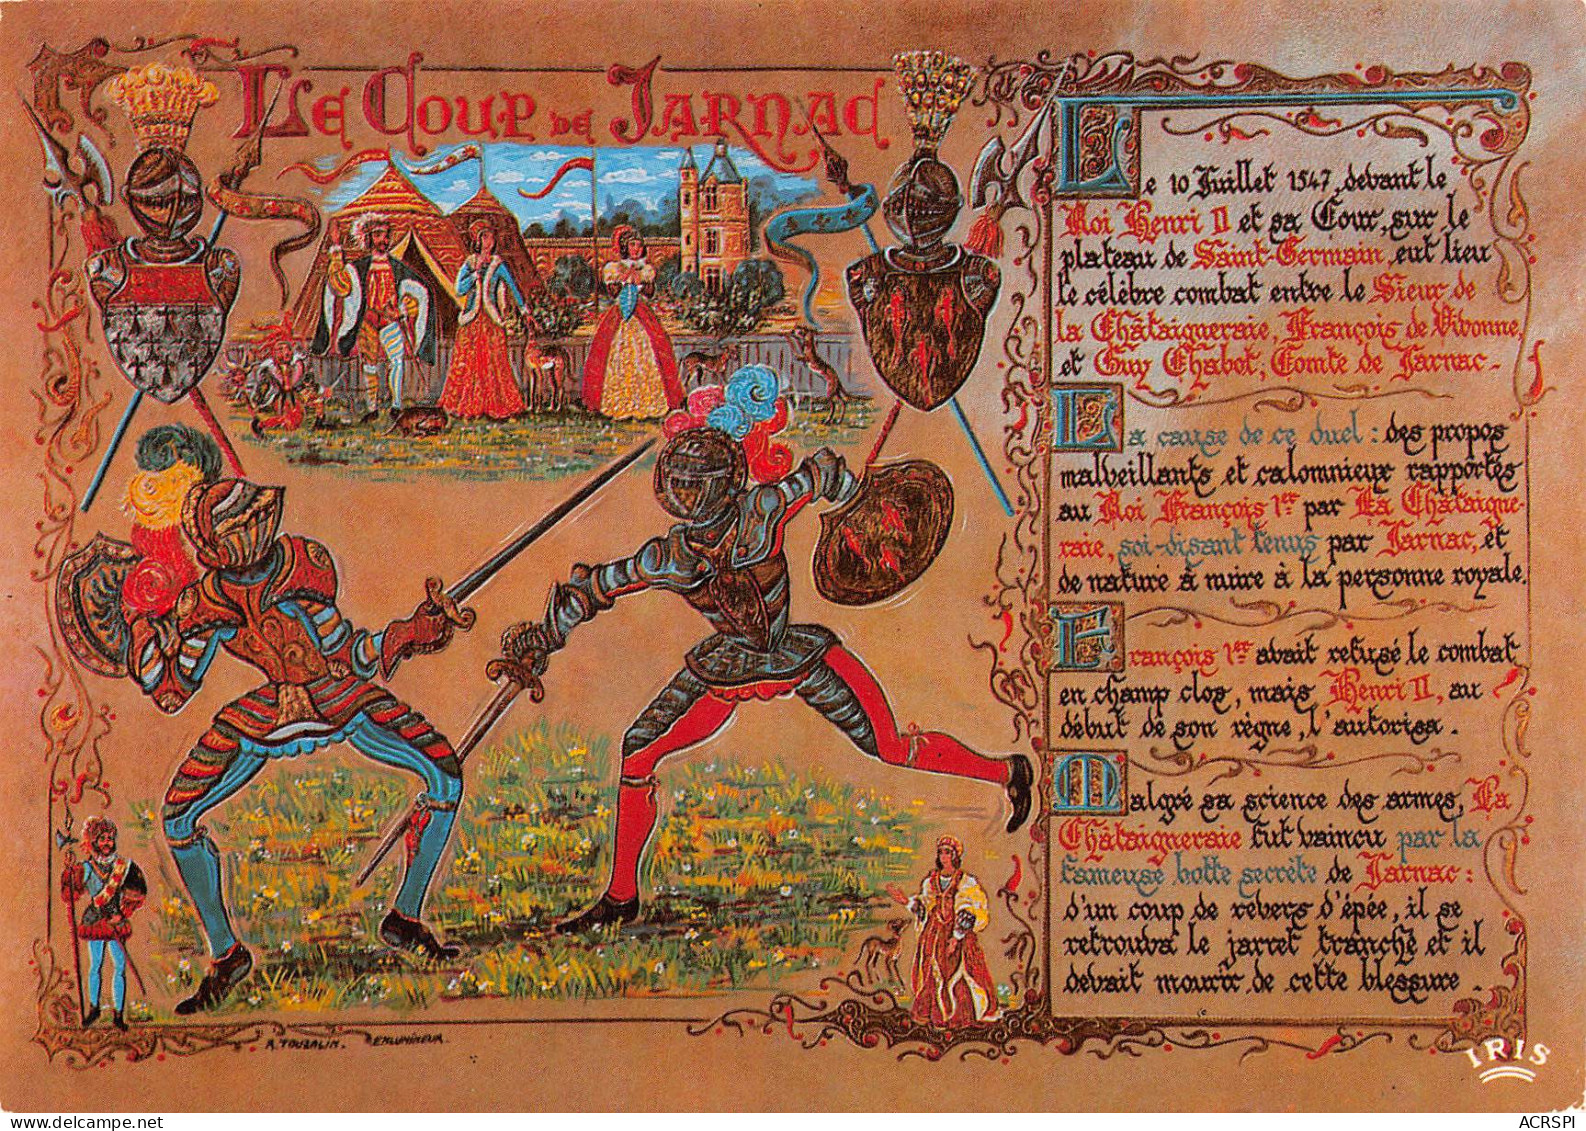 Le Coup de Jarnac
Le 10 Juillet 1547, devant le
Roi Henri II et sa Cour, sur le
plateau de Saint-Germain, eut lieu
le célèbre combat entre le Sieur de
la Châtaigneraie, François de Vivonne,
et Guy Chabot, Comte de Jarnac.
La cause de ce duel : des propos
malveillants et calomnieux rapportés
au Roi François 1er par La Châtaigne-
raie, soi-disant tenus par Jarnac, et
de nature à nuire à la personne royale.
François 1er avait refusé le combat
en champ clos, mais Henri II, au
début de son règne, l'autorisa.
Malgré sa science des armes, La
Châtaigneraie fut vaincu par la
fameuse botte secrète de Jarnac :
d'un coup de revers d'épée, il se
retrouva le jarret tranché et il
devait mourir de cette blessure.
R. TOUZALIN. ENLUMINEUR.
IRIS
ACRSPI